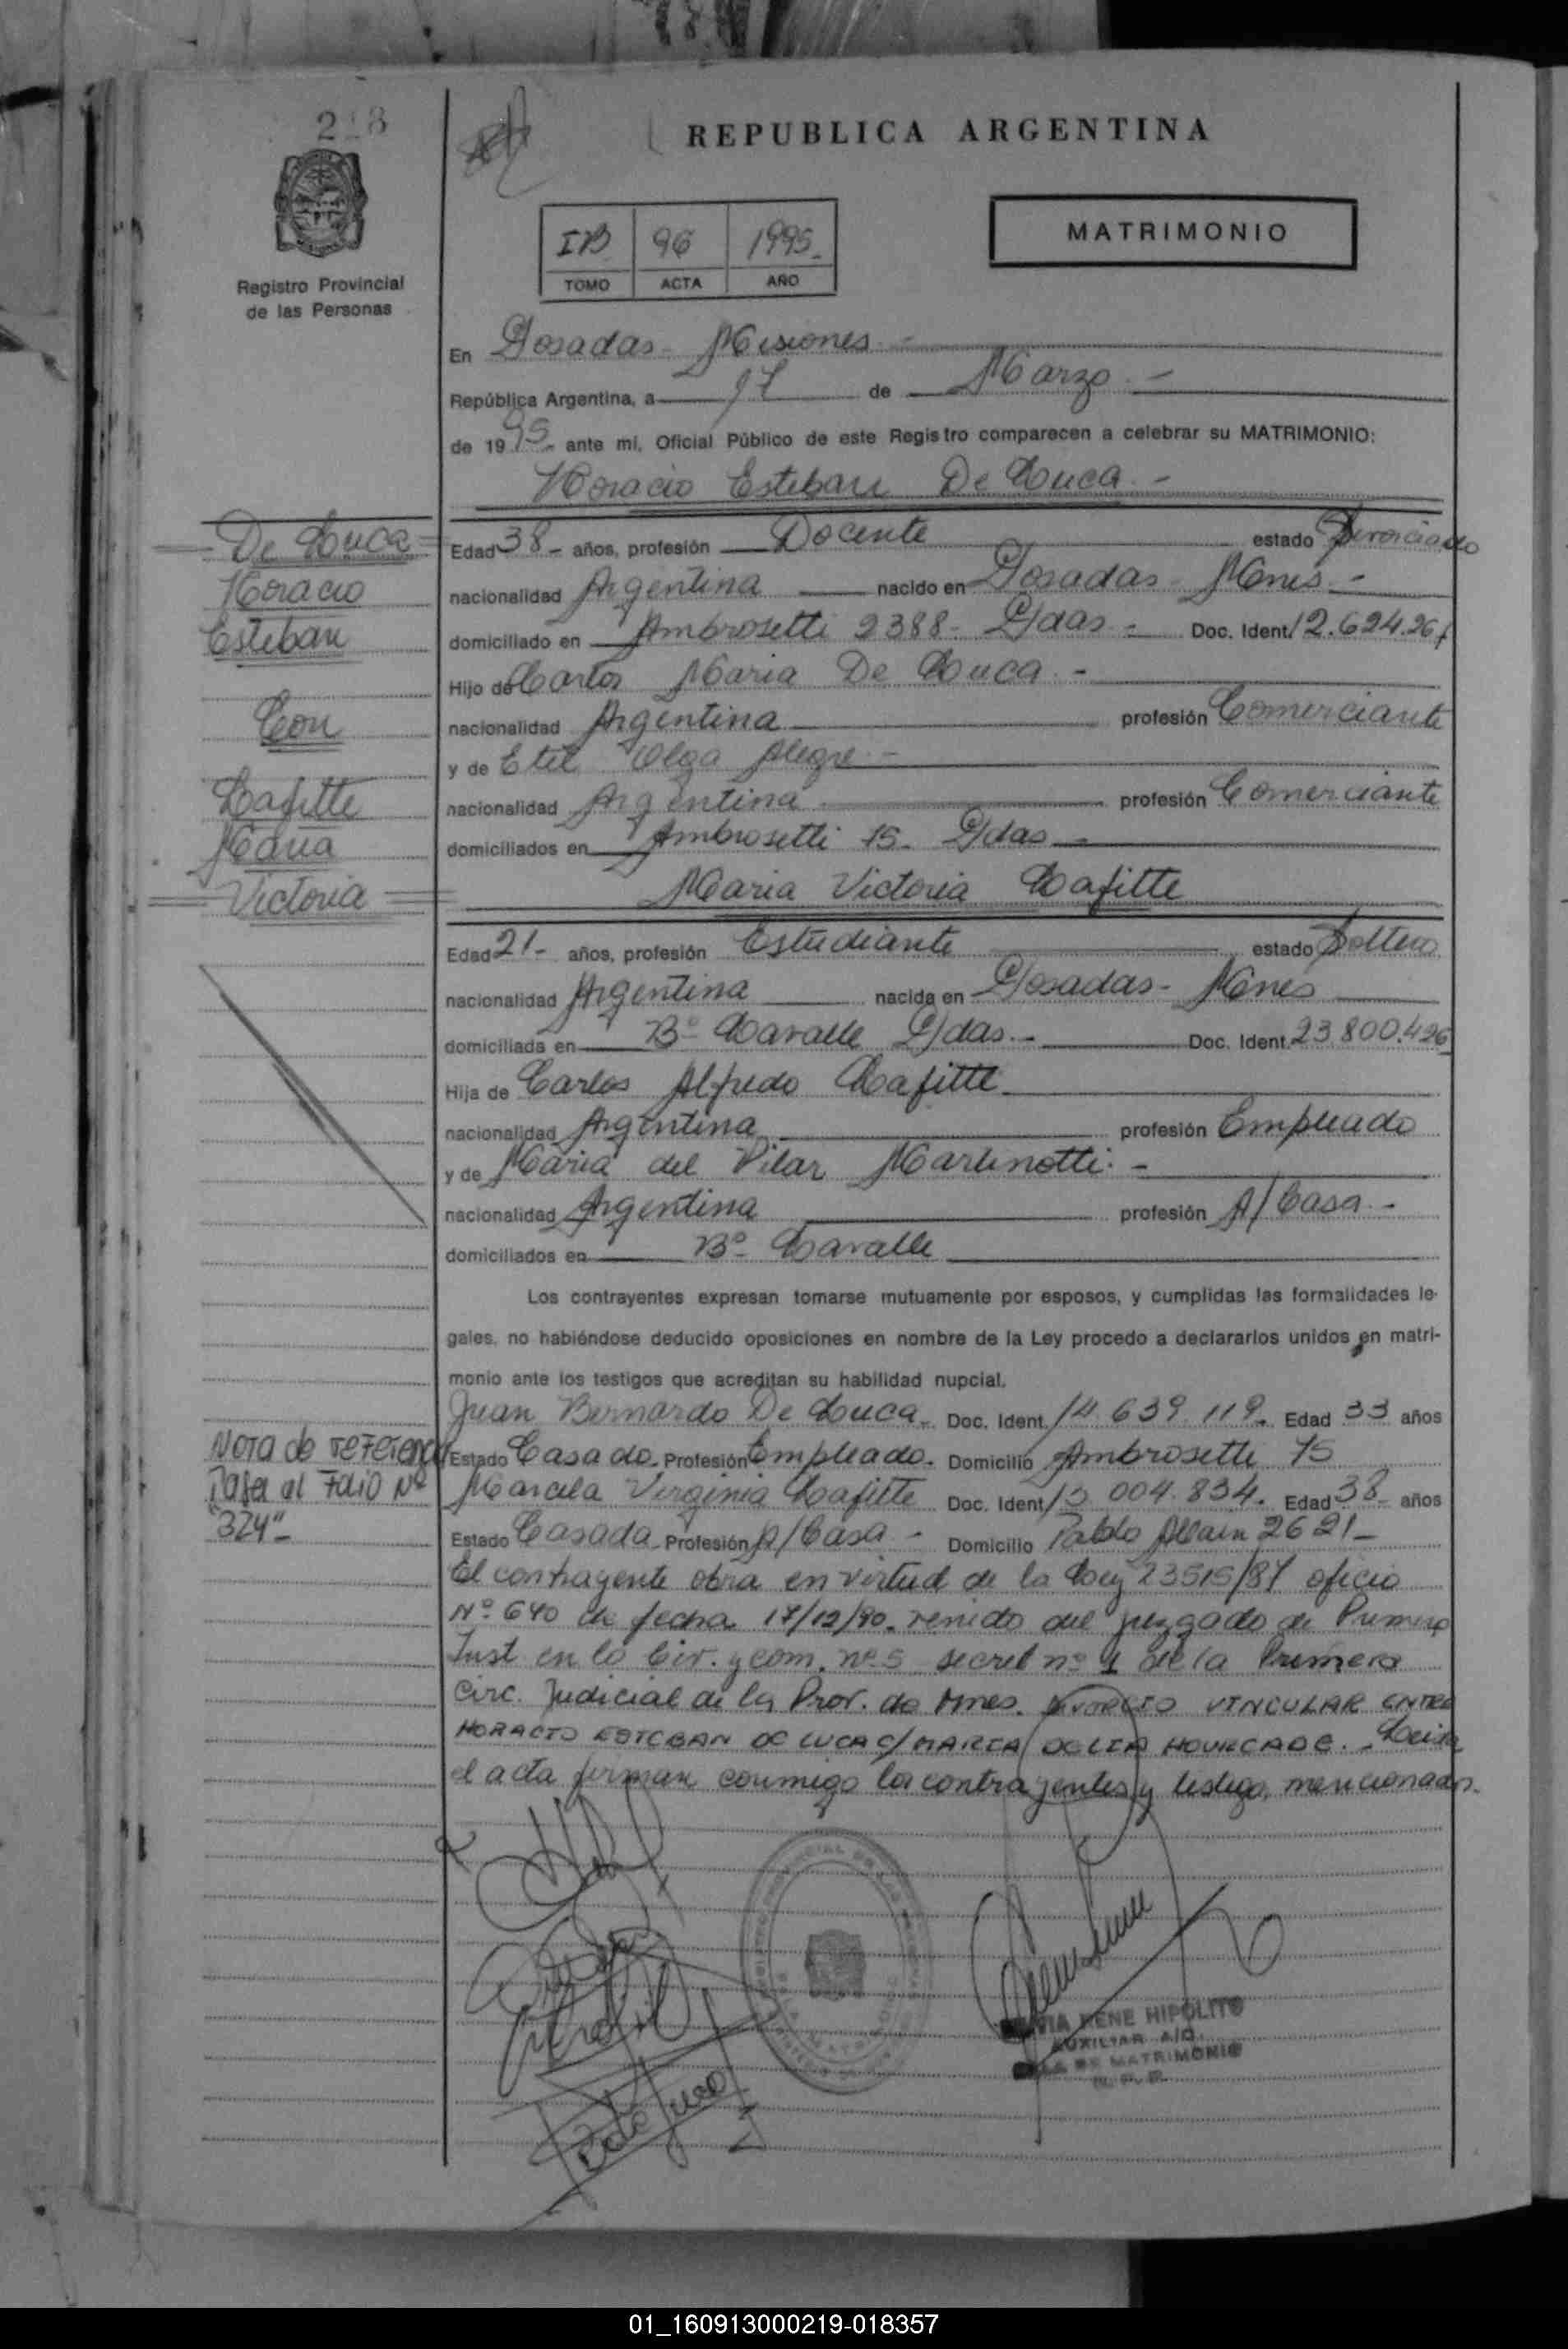 REPUBLICA ARGENTINA
Registro Provincial
de las Personas
IB 96 1995
TOMO ACTA AÑO
MATRIMONIO
En Posadas - Misiones -
República Argentina, a 17 de Marzo -
de 1995 ante mí, Oficial Público de este Registro comparecen a celebrar su MATRIMONIO:
Horacio Esteban De Luca -
De Luca
Horacio
Esteban
Con
Lafitte
Maria
Victoria
Edad 38 - años, profesión Docente estado Divorciado
nacionalidad Argentina nacido en Posadas - Mnes -
domiciliado en Ambrosetti 2388 - Pdas - Doc. Ident. 12.624.26
Hijo de Carlos Maria De Luca -
nacionalidad Argentina profesión Comerciante
y de Etel Olga Alegre -
nacionalidad Argentina profesión Comerciante
domiciliados en Ambrosetti 75 - Pdas -
Maria Victoria Lafitte
Edad 21 - años, profesión Estudiante estado Soltera
nacionalidad Argentina nacida en Posadas - Mnes
domiciliada en B° Lavalle Pdas. - Doc. Ident. 23.800.426
Hija de Carlos Alfredo Lafitte
nacionalidad Argentina profesión Empleado
y de Maria del Pilar Martinotti. -
nacionalidad Argentina profesión A/Casa -
domiciliados en B° Lavalle
Los contrayentes expresan tomarse mutuamente por esposos, y cumplidas las formalidades le-
gales, no habiéndose deducido oposiciones en nombre de la Ley procedo a declararlos unidos en matri-
monio ante los testigos que acreditan su habilidad nupcial.
Juan Bernardo De Luca - Doc. Ident. 14.639.119 - Edad 33 años
Estado Casado - Profesión Empleado - Domicilio Ambrosetti 75
Marcela Virginia Lafitte Doc. Ident. 13 004.834 - Edad 38 años
Estado Casada - Profesión A/Casa - Domicilio Pablo Allain 2621 -
Nota de referencia
Pasa al Folio N°
"324" -
El contrayente obra en virtud de la Ley 23515/87 oficio
N° 640 de fecha 17/12/90. venido del juzgado de Primera
Inst en lo Civ. y com. n° 5 secret n° 1 de la Primera
Circ. Judicial de la Prov. de Mnes. DIVORCIO VINCULAR ENTRE
HORACIO ESTEBAN DE LUCA C/ MARIA DELIA HOURCADE. - Leida
el acta firman conmigo los contrayentes y testigos mencionados.
IRENE HIPOLITO
AUXILIAR A/C.
SALA DE MATRIMONIO
R. P. P.
01_160913000219-018357